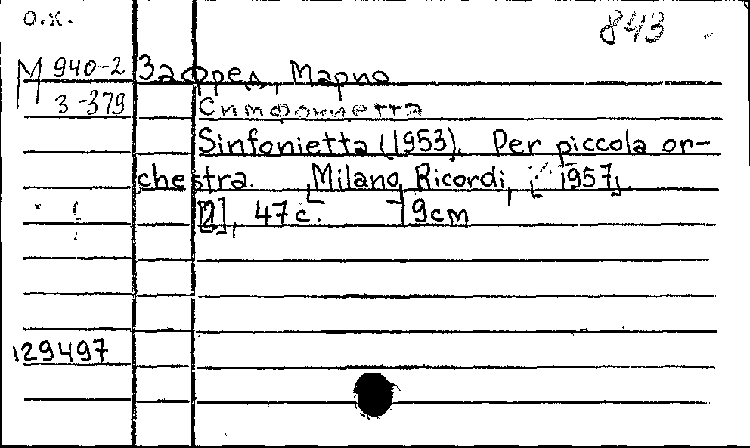 о.к.
843
М 940-2
З-379
Зафред, Марио
Симфониетта
Sinfonietta (1953). Per piccola or-
chestra. [Milano, Ricordi, [1957].
[2], 47 с. 19cm
129497